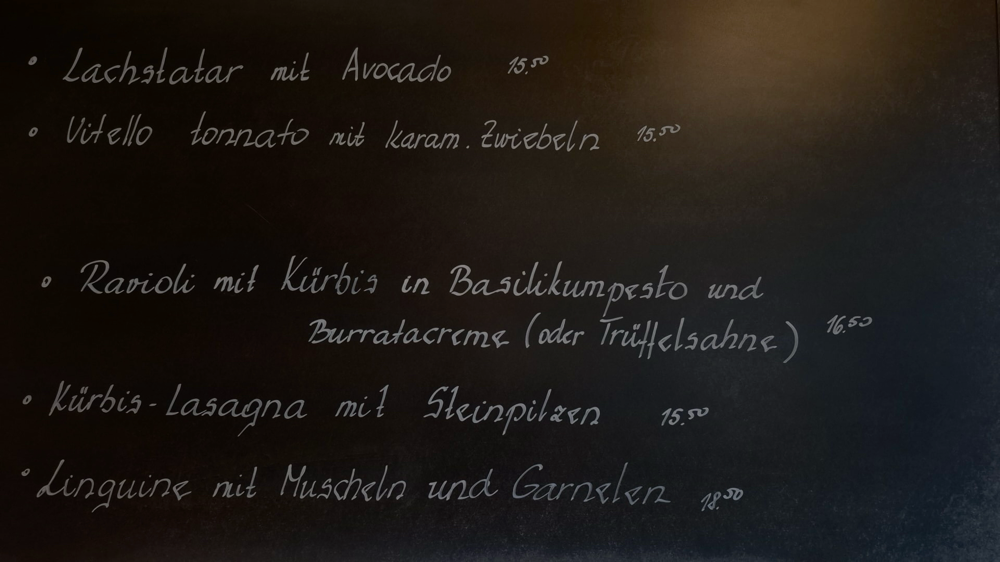 • Lachstatar mit Avocado 15.50
• Vitello tonnato mit karam. Zwiebeln 15.50
• Ravioli mit Kürbis in Basilikumpesto und
Burratacreme (oder Trüffelsahne) 16.50
• Kürbis-Lasagna mit Steinpilzen 15.50
• Linguine mit Muscheln und Garnelen 18.50